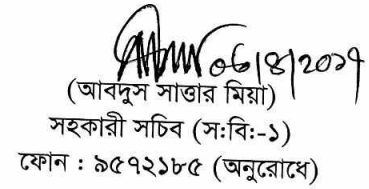 ০৬/৪/২০১৭
(আবদুস সাত্তার মিয়া)
সহকারী সচিব (স:বি:-১)
ফোন : ৯৫৭২১৮৫ (অনুরোধে)